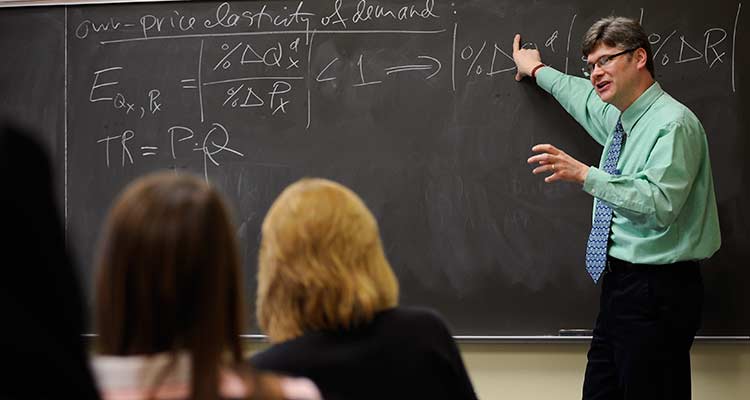 own-price elasticity of demand :
E_{Qx, Px} = |%ΔQx^d / %ΔPx| < 1 ⟹ |%Δ d| |%ΔPx|
TR = P·Q